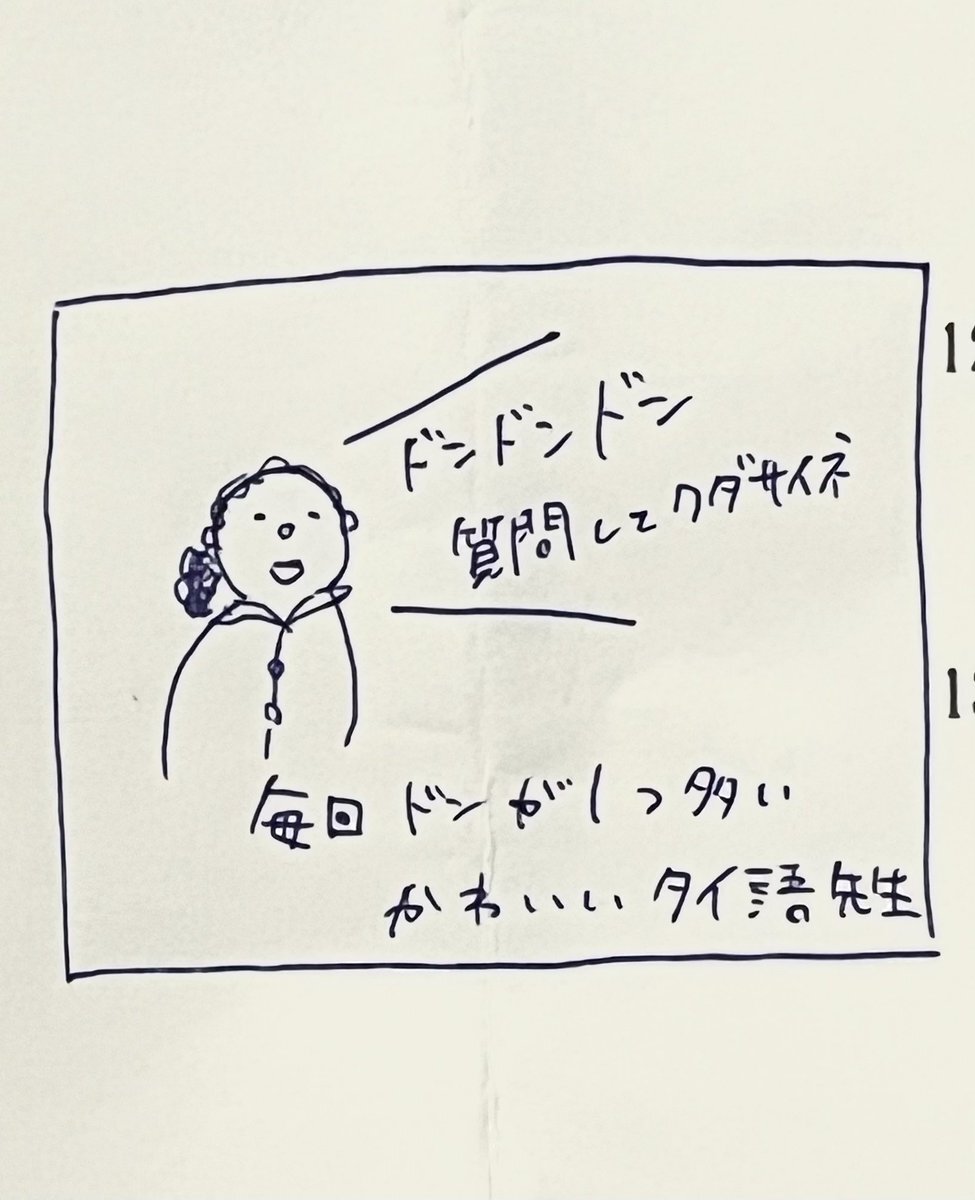 ドンドンドン
質問してクダサイネ
毎回ドンが1つ多い
かわいいタイ語先生